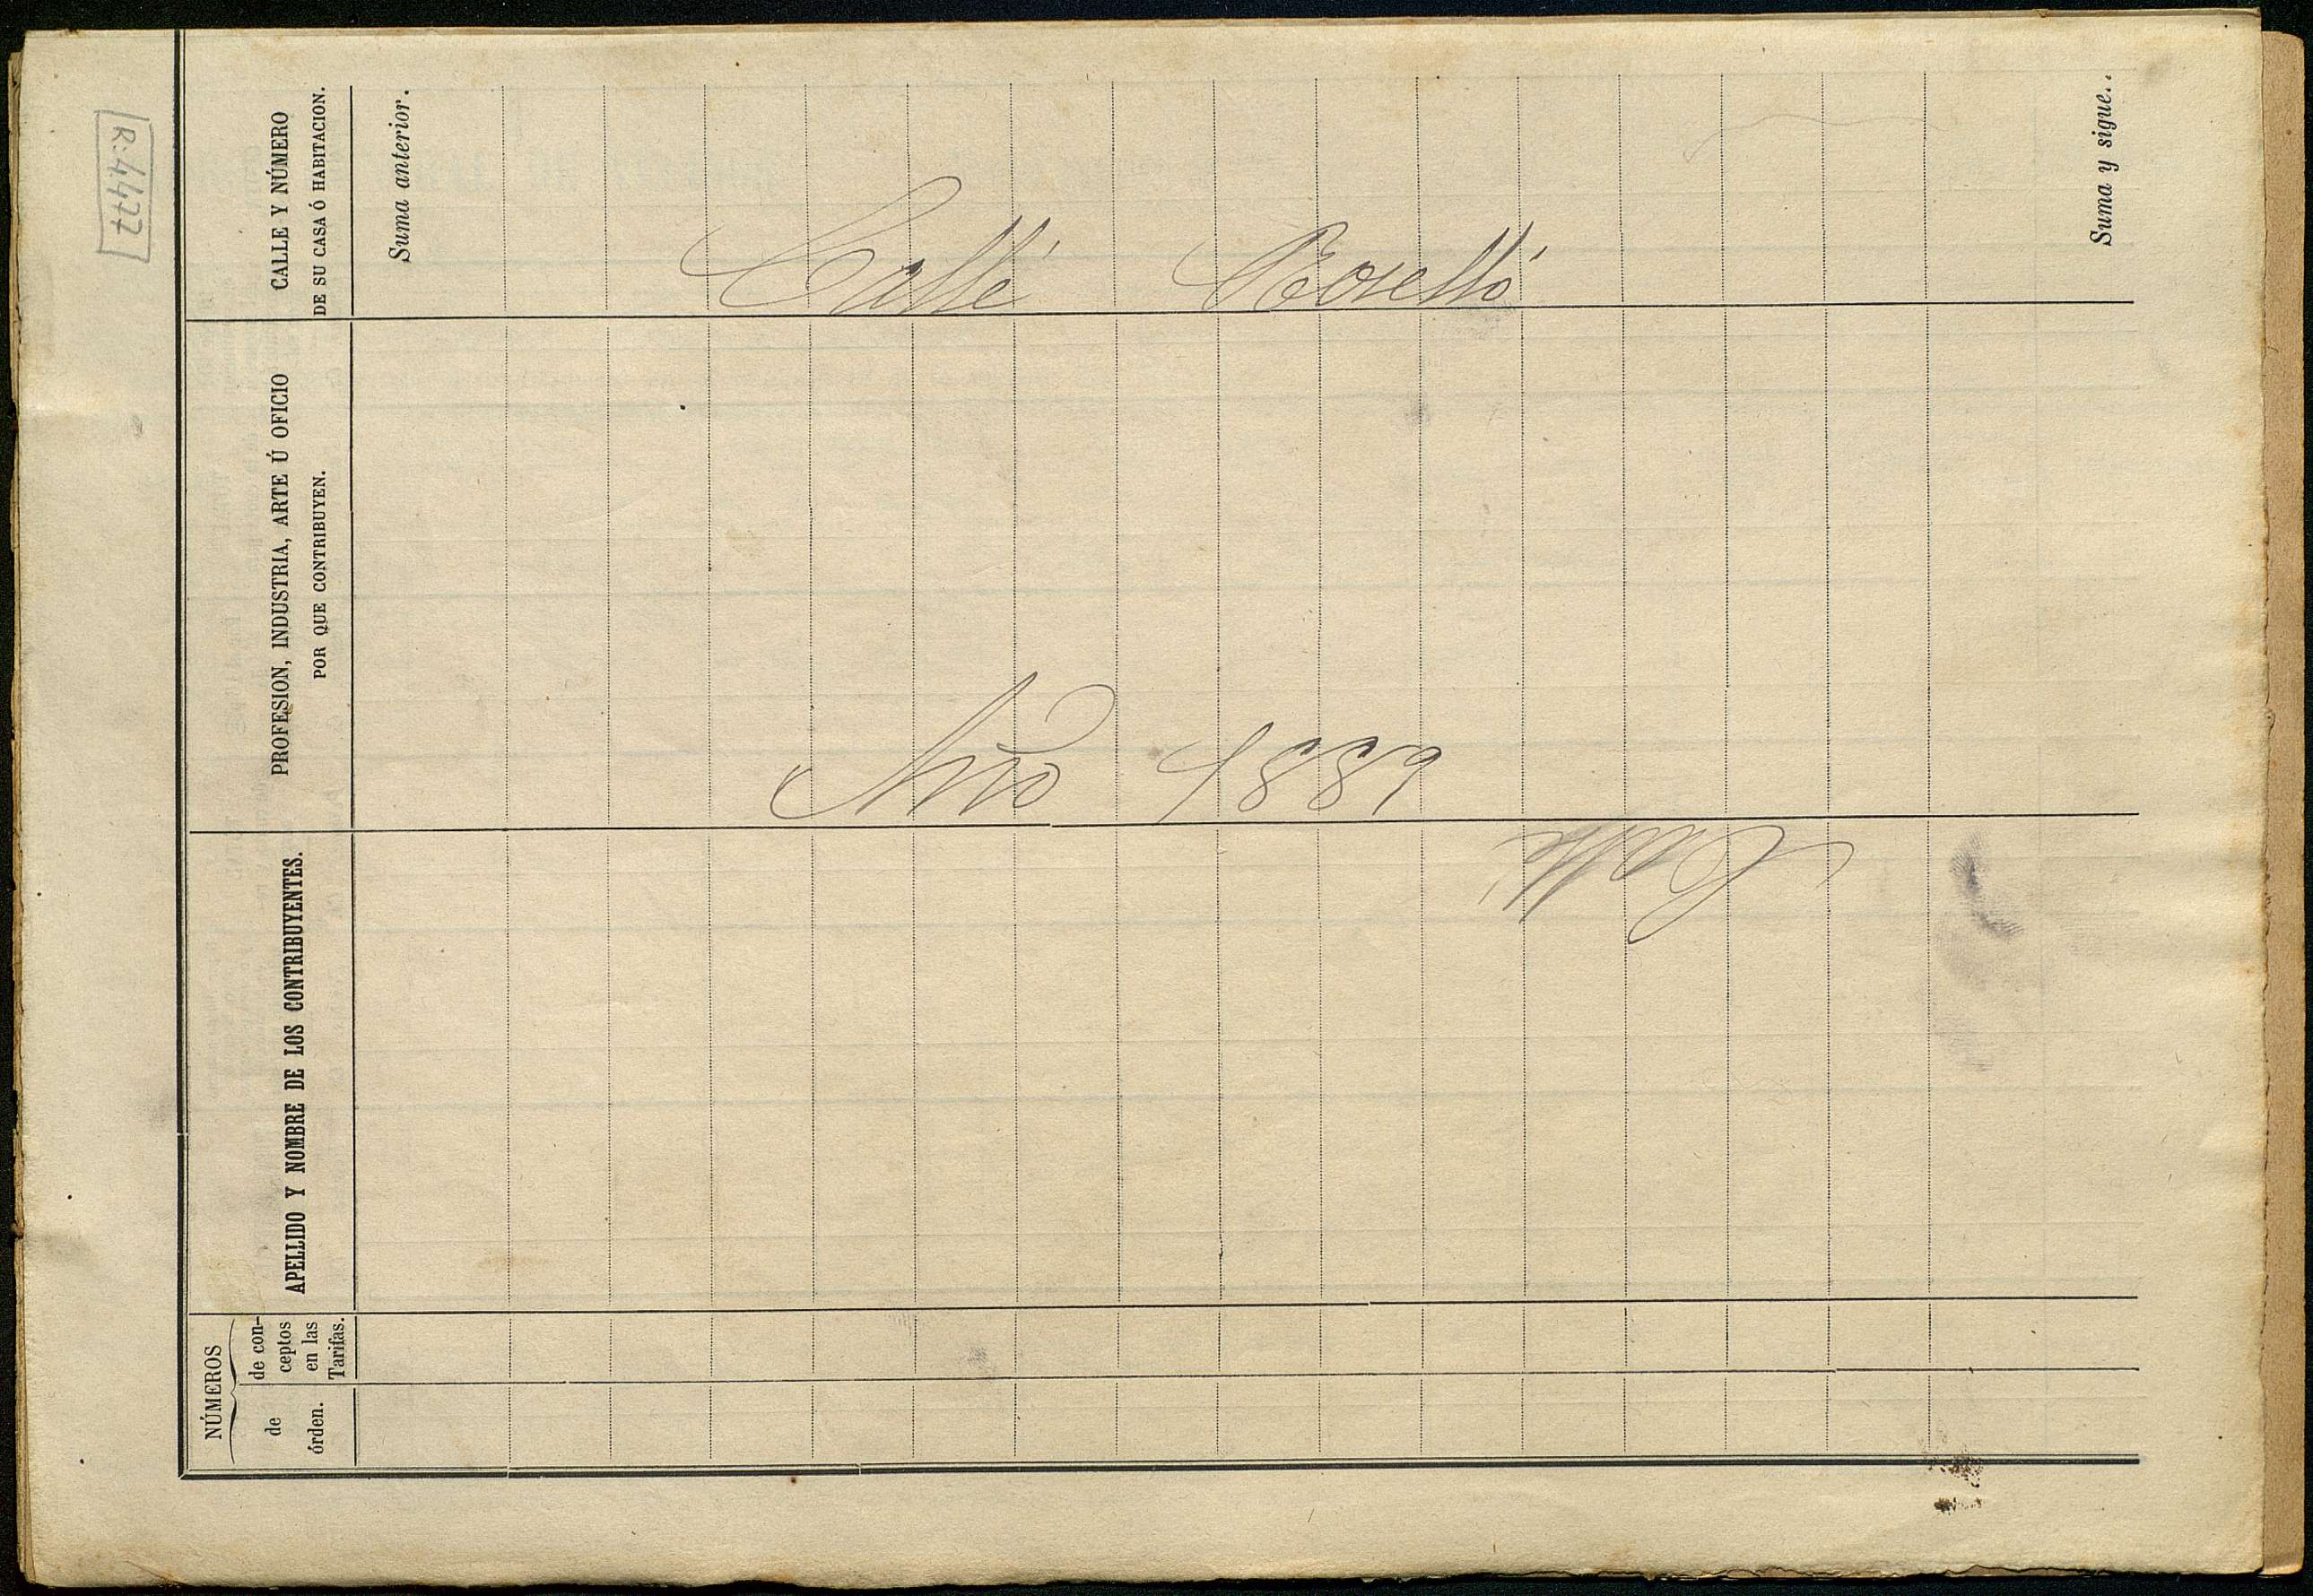 NÚMEROS
de
órden.
de con-
ceptos
en las
Tarifas.
APELLIDO Y NOMBRE DE LOS CONTRIBUYENTES.
PROFESION, INDUSTRIA, ARTE Ú OFICIO
POR QUE CONTRIBUYEN.
CALLE Y NÚMERO
DE SU CASA Ó HABITACION.
Suma anterior.
Suma y sigue..
R:4477
Callé Roselló
Año 1889
Callé